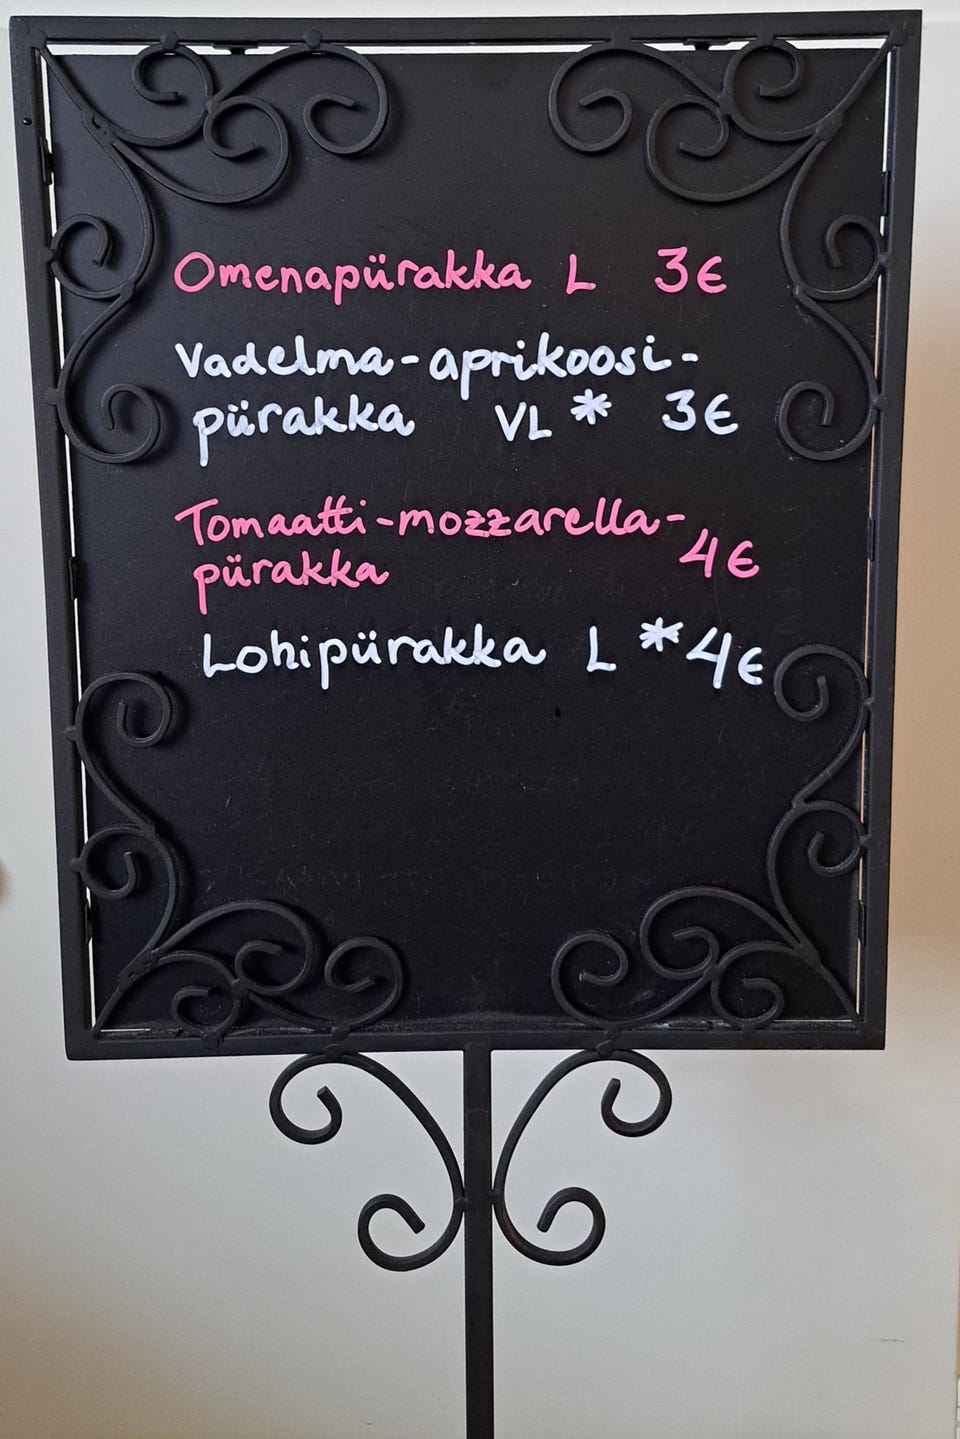 Omenapürakka L 3€
Vadelma-aprikoosi-
pürakka VL * 3€
Tomaatti-mozzarella-
pürakka 4€
Lohipürakka L * 4€